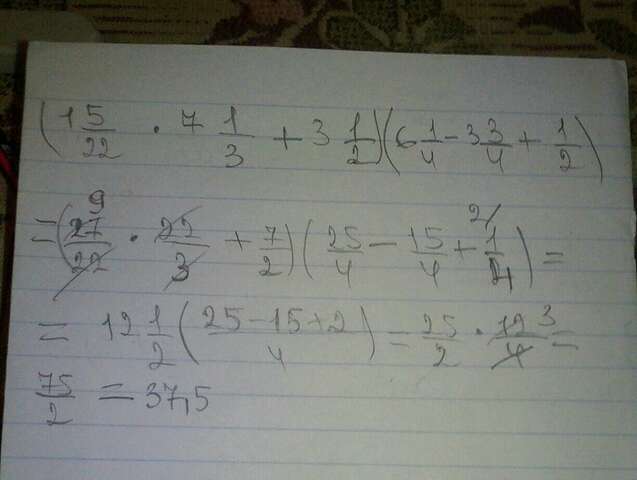 (1 5/22 · 7 1/3 + 3 1/2)(6 1/4 - 3 3/4 + 1/2)
= (27/22 9 · 22/3 + 7/2)(25/4 - 15/4 + 1/4 2/) =
= 12 1/2 (25-15+2/4) = 25/2 · 12/4 3 =
75/2 = 37,5